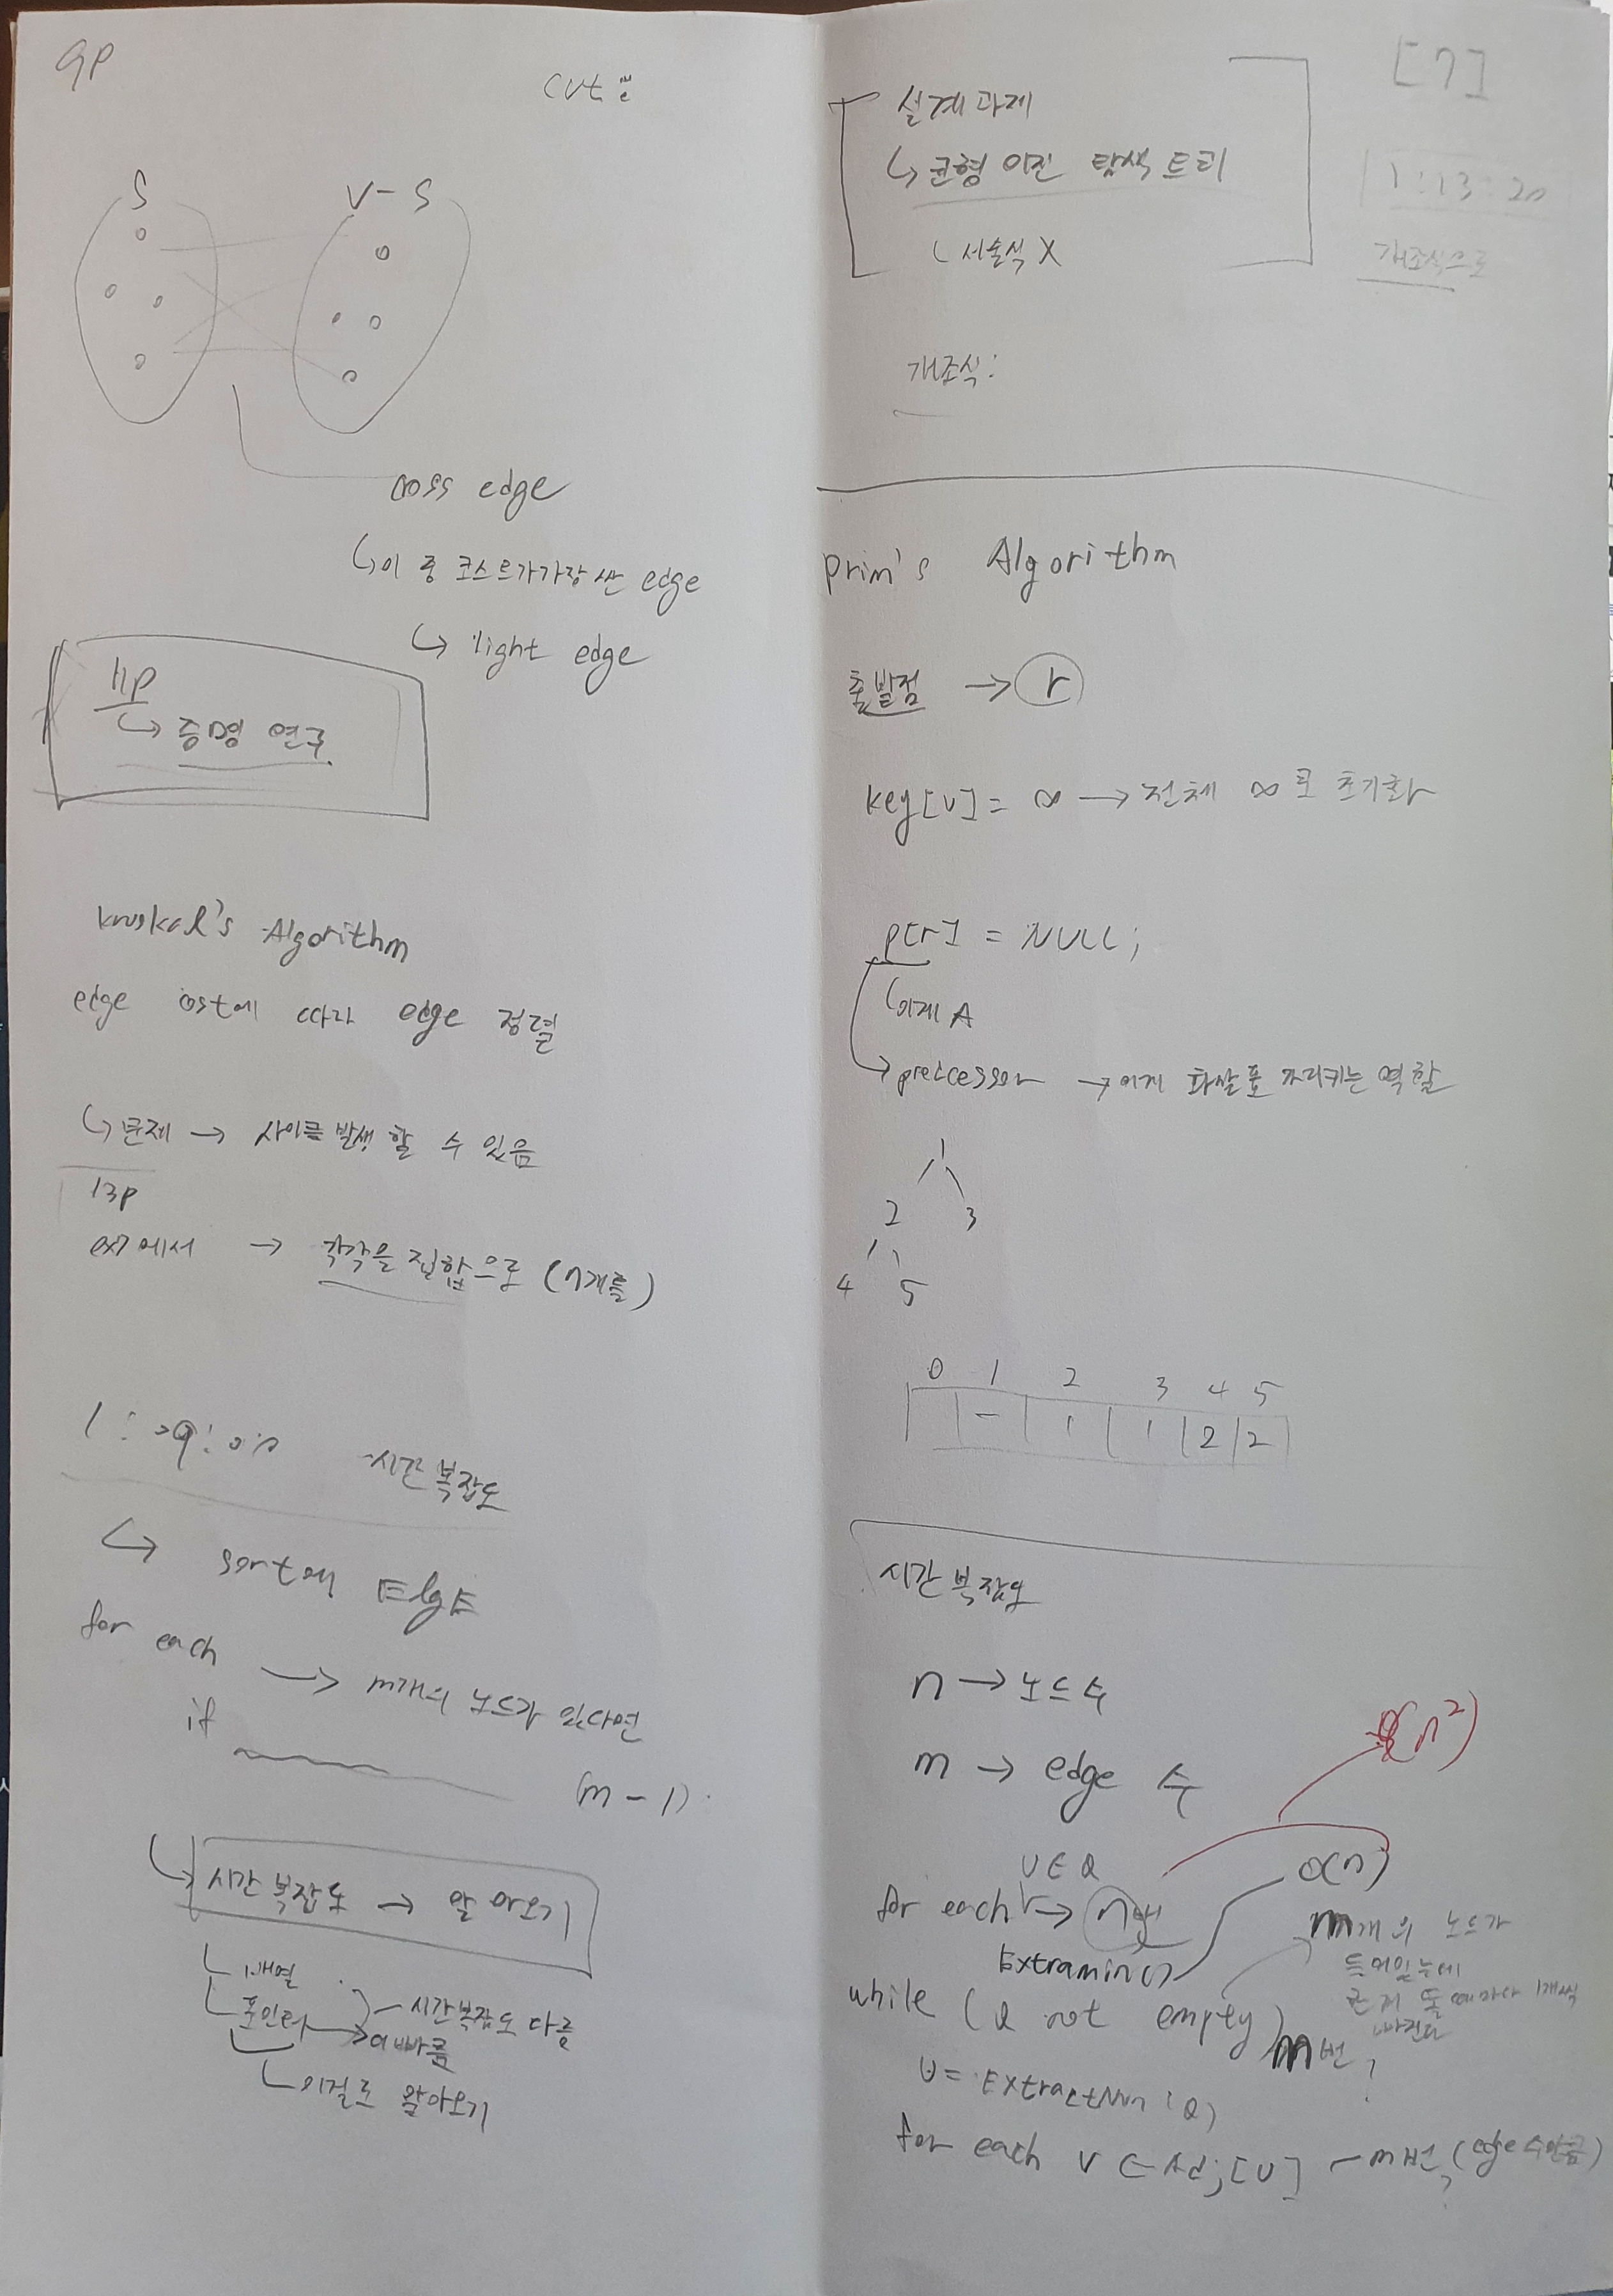 9P
cut :
S
V - S
cross edge
↳ 이 중 코스트가 가장 싼 edge
↳ light edge
11p
↳ 증명 연구.
kruskal's Algorithm
edge cost에 따라 edge 정렬
↳ 문제 → 사이클 발생 할 수 있음
13p
ex7에서 → 각각을 집합으로 (n개를)
시간 복잡도
↳ sort에 ElgE
for each → m개의 노드가 있다면
if
(m-1)
↳ 시간 복잡도 → 알아오기
배열
포인터 → 더 빠름
시간복잡도 다름
이걸로 알아오기
[7]
설계과제
↳ 균형 이진 탐색 트리
서술식 X
1:13:20
개조식으로
개조식:
prim's Algorithm
출발점 → r
key[u] = ∞ → 전체 ∞로 초기화
p[r] = NULL;
이게 A
→ predcessor → 이게 화살표 가리키는 역할
1
2 3
4 5
0 1 2 3 4 5
- 1 1 2 2
시간 복잡도
n → 노드 수
m → edge 수
(n²)
u∈Q
O(n)
for each → n번
m개의 노드가
Extramin()
while (Q not empty) m번
u = ExtractMin(Q)
for each v ∈ Adj[u] - m번, (edge 수만큼)